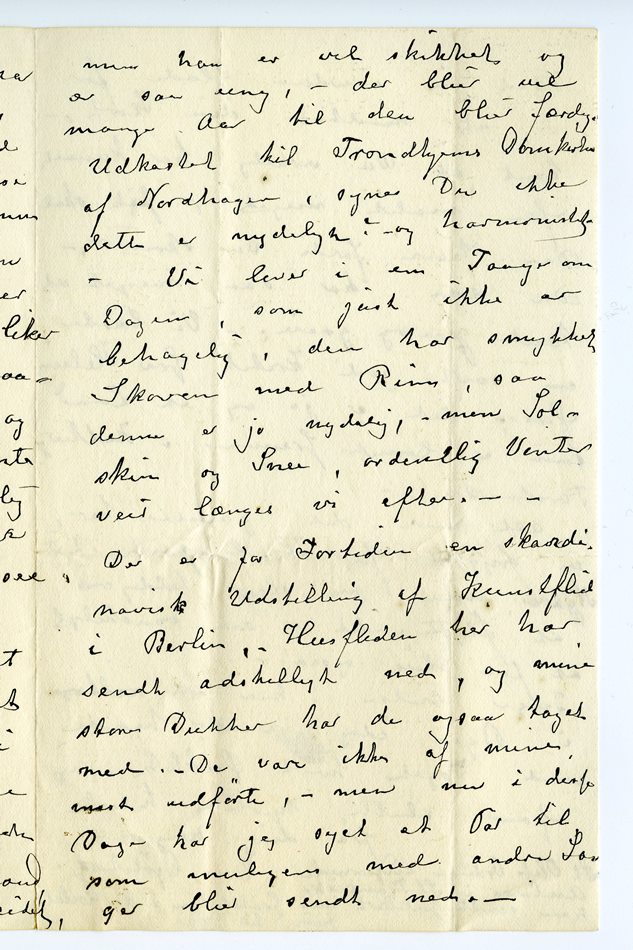 men han er vel skikket og
er saa ung, – der blir vel
mange Aar til den blir færdig.
Udkastet til Trondhjems Domkirke
af Nordhagen, synes Du ikke
dette er nydeligt? – og harmonisk
– Vi lever i en Taage om
Dagen, som just ikke er
behagelig, den har smykket
Skoven med Rim, saa
denne er jo nydelig, – men Sol-
skin og Snee, ordentlig Vinter
veir længes vi efter. – –
Der er for Tortiden en skandi-
navisk Udstilling af Kunstflid
i Berlin, – Husfliden her har
sendt adskelligt ned, og mine
store Dukker har de ogsaa taget
med. – De var ikke af mine
mest udførte, – men nu i disse
Dage har jeg syet et Par til
som muligens med andre Sa
ger blir sendt ned. –
liker
aa-
og
see